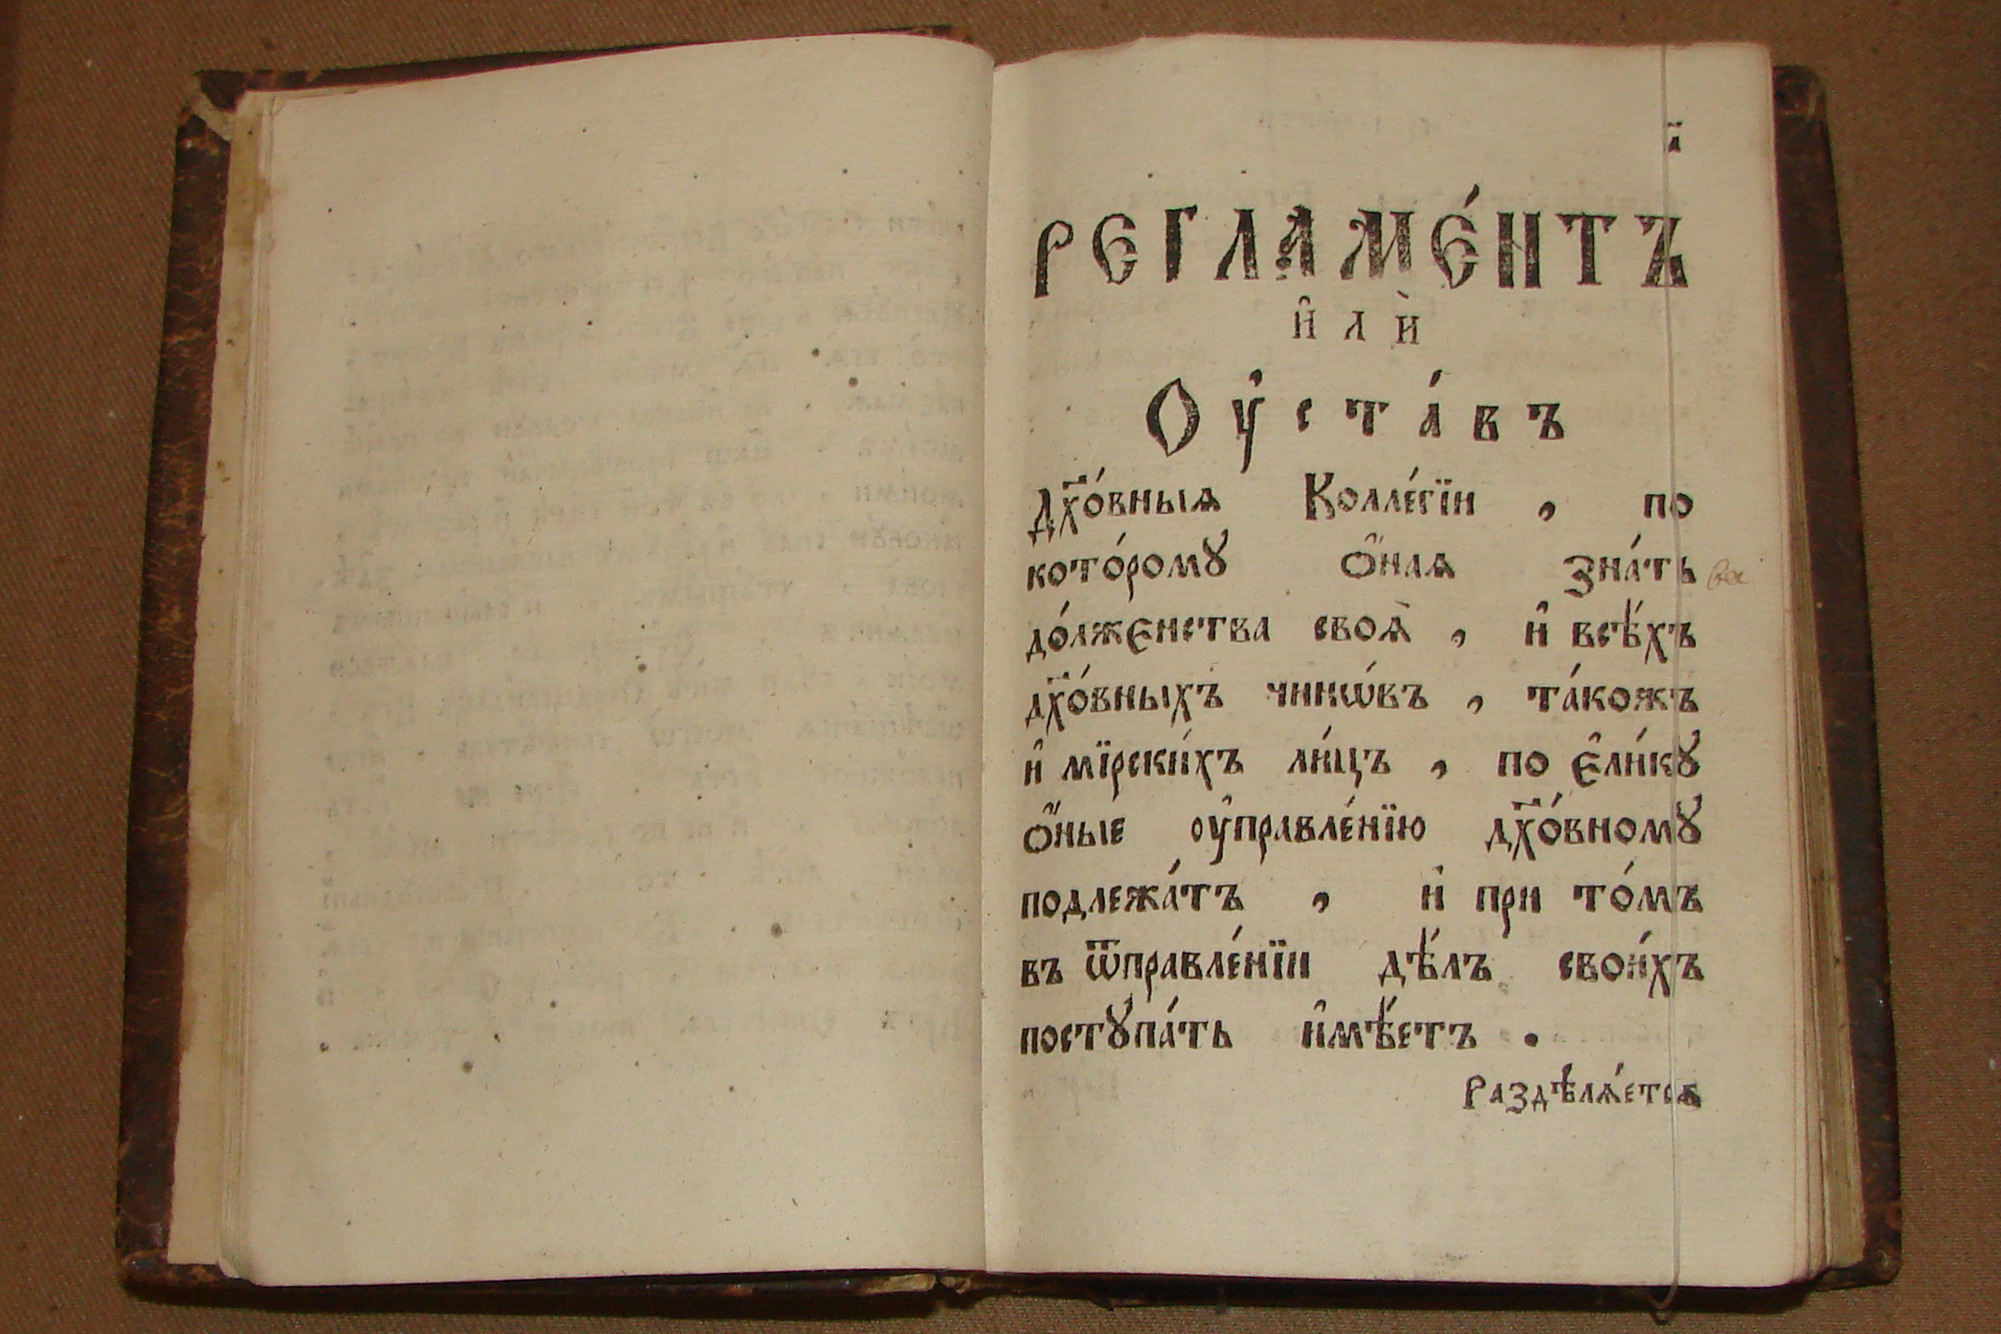 РЕГЛАМЕ́НТЪ
и҆лѝ
Оу҆ста́въ
дх҃о́вныѧ Колле́гїи , по
кото́ромꙋ ѻ҆́наѧ зна́ть
до́лженства своѧ̀ , и҆ всѣ́хъ
дх҃о́вныхъ чинѡ́въ , та́кожъ
и҆ мїрски́хъ ли́цъ , по є҆ли́кꙋ
ѻ҆́ные оу҆правле́нїю дх҃о́вномꙋ
подлежа́тъ , и҆ при то́мъ
въ ѿправле́нїи дѣ́лъ свои́хъ
постꙋпа́ть и҆мѣ́етъ .
Раздѣлѧ́етсѧ